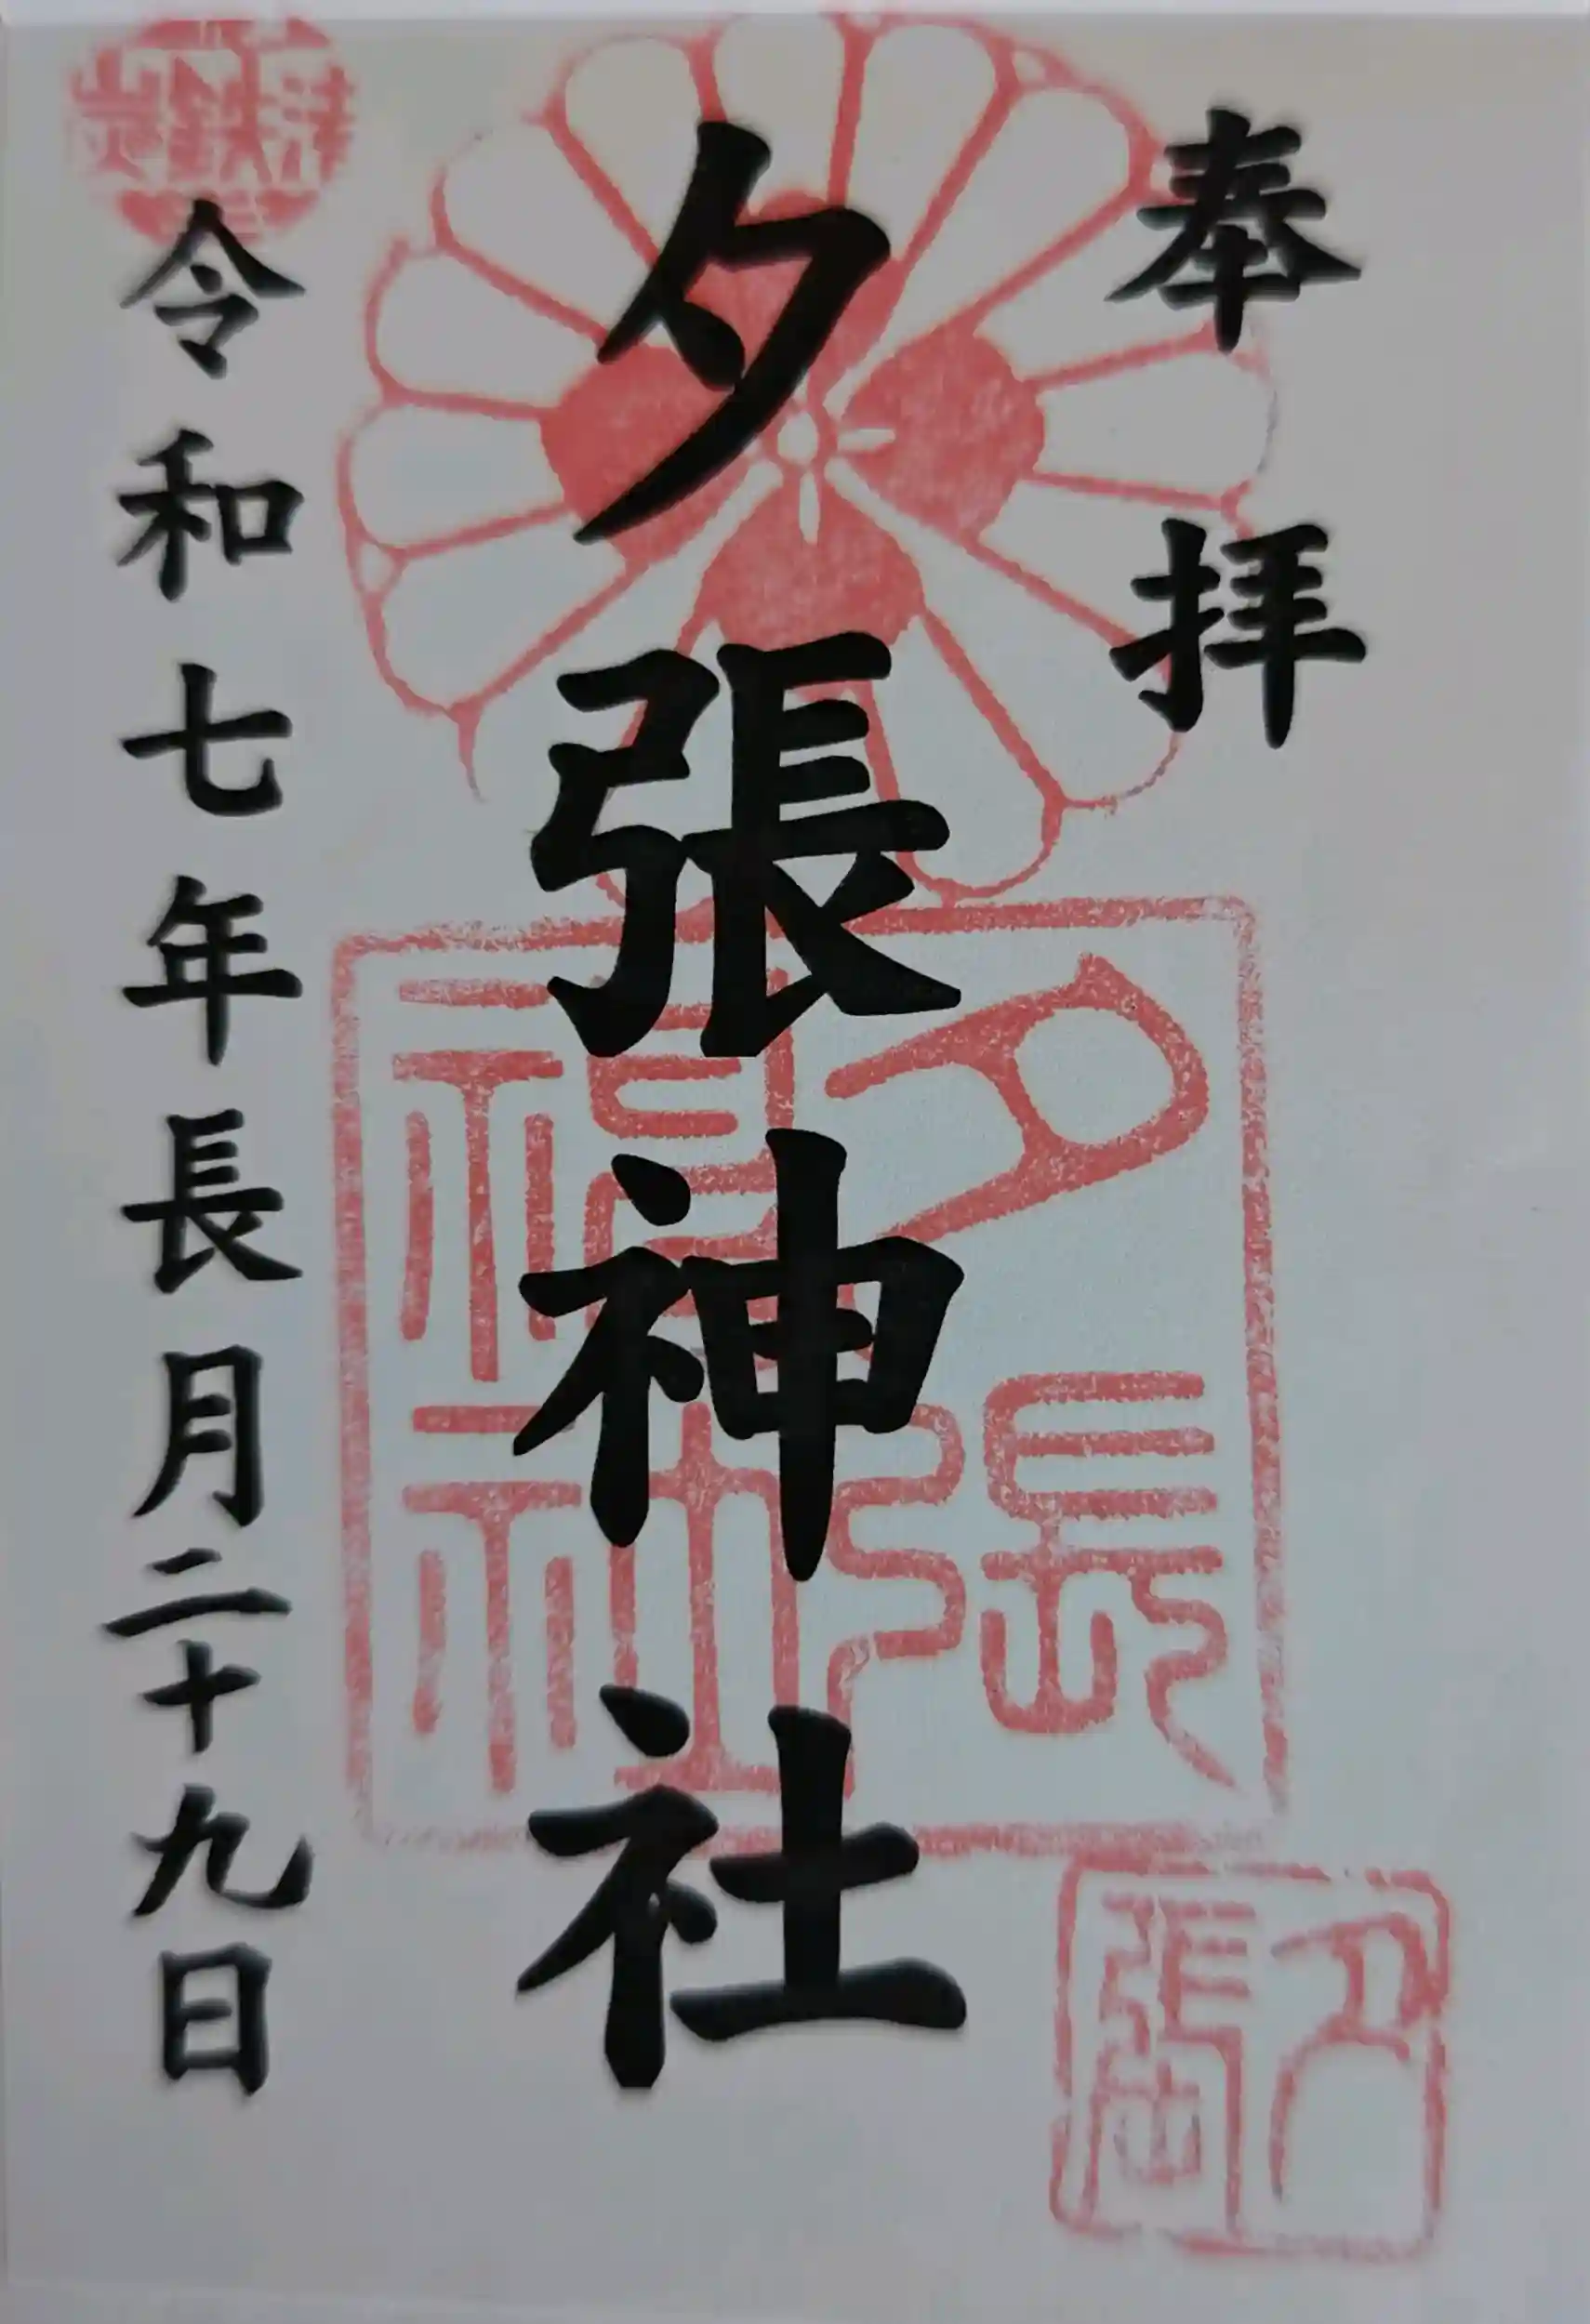 奉拝
夕張神社
令和七年長月二十九日
夕張神社
夕張岡